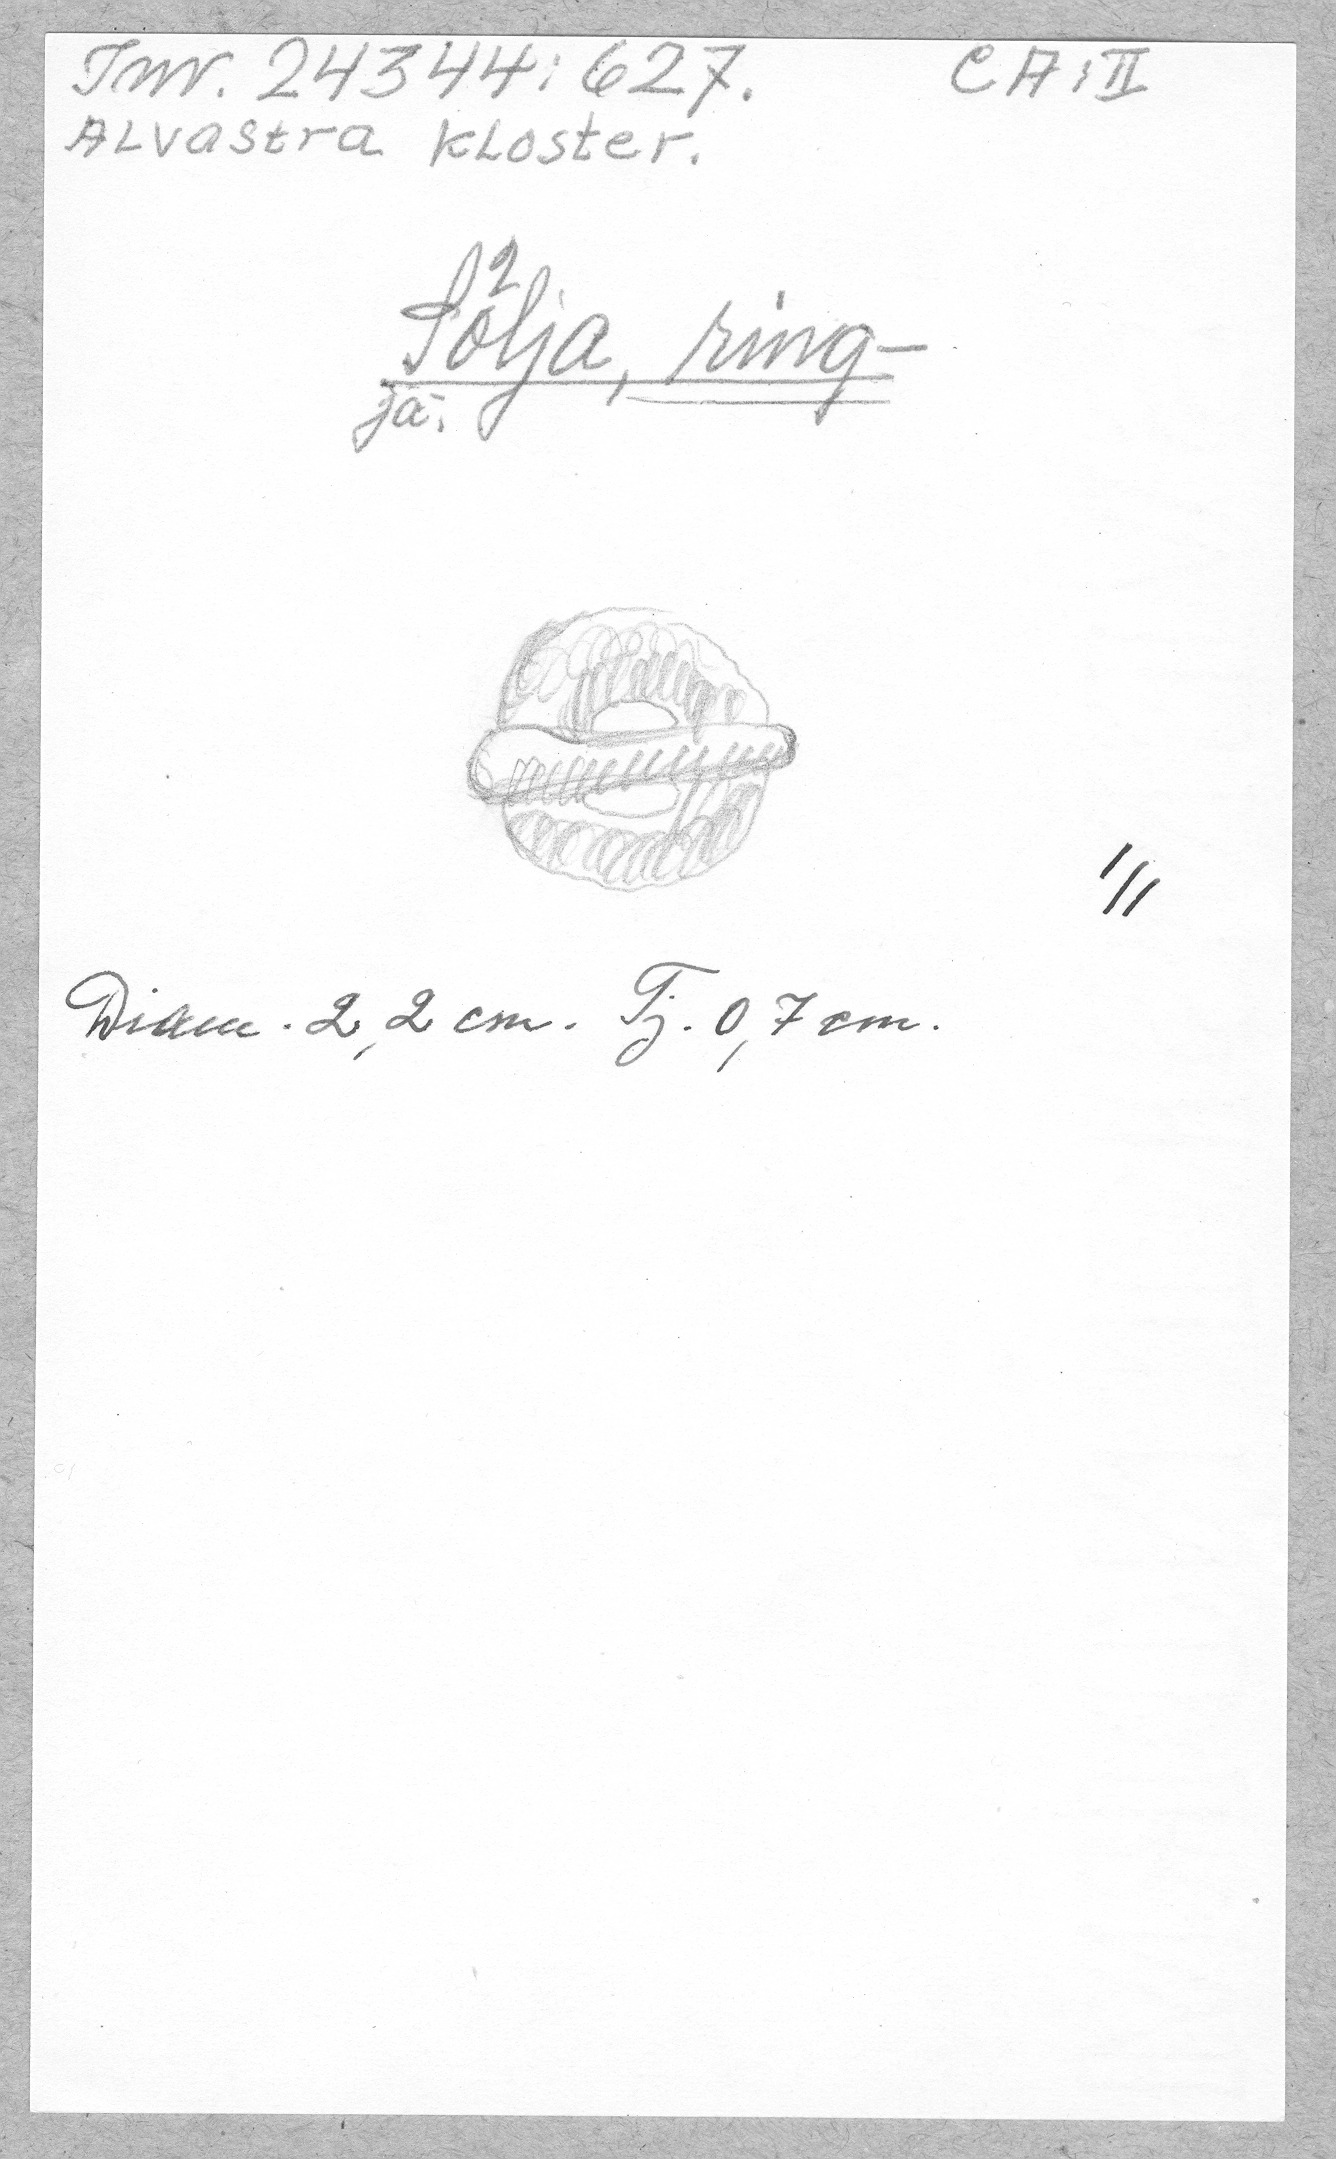 Inv. 24344:627. CA:II
ALvastra kLoster.
Sölja, ring-
ja.
1/1
Diam. 2,2 cm. Tj. 0,7 cm.